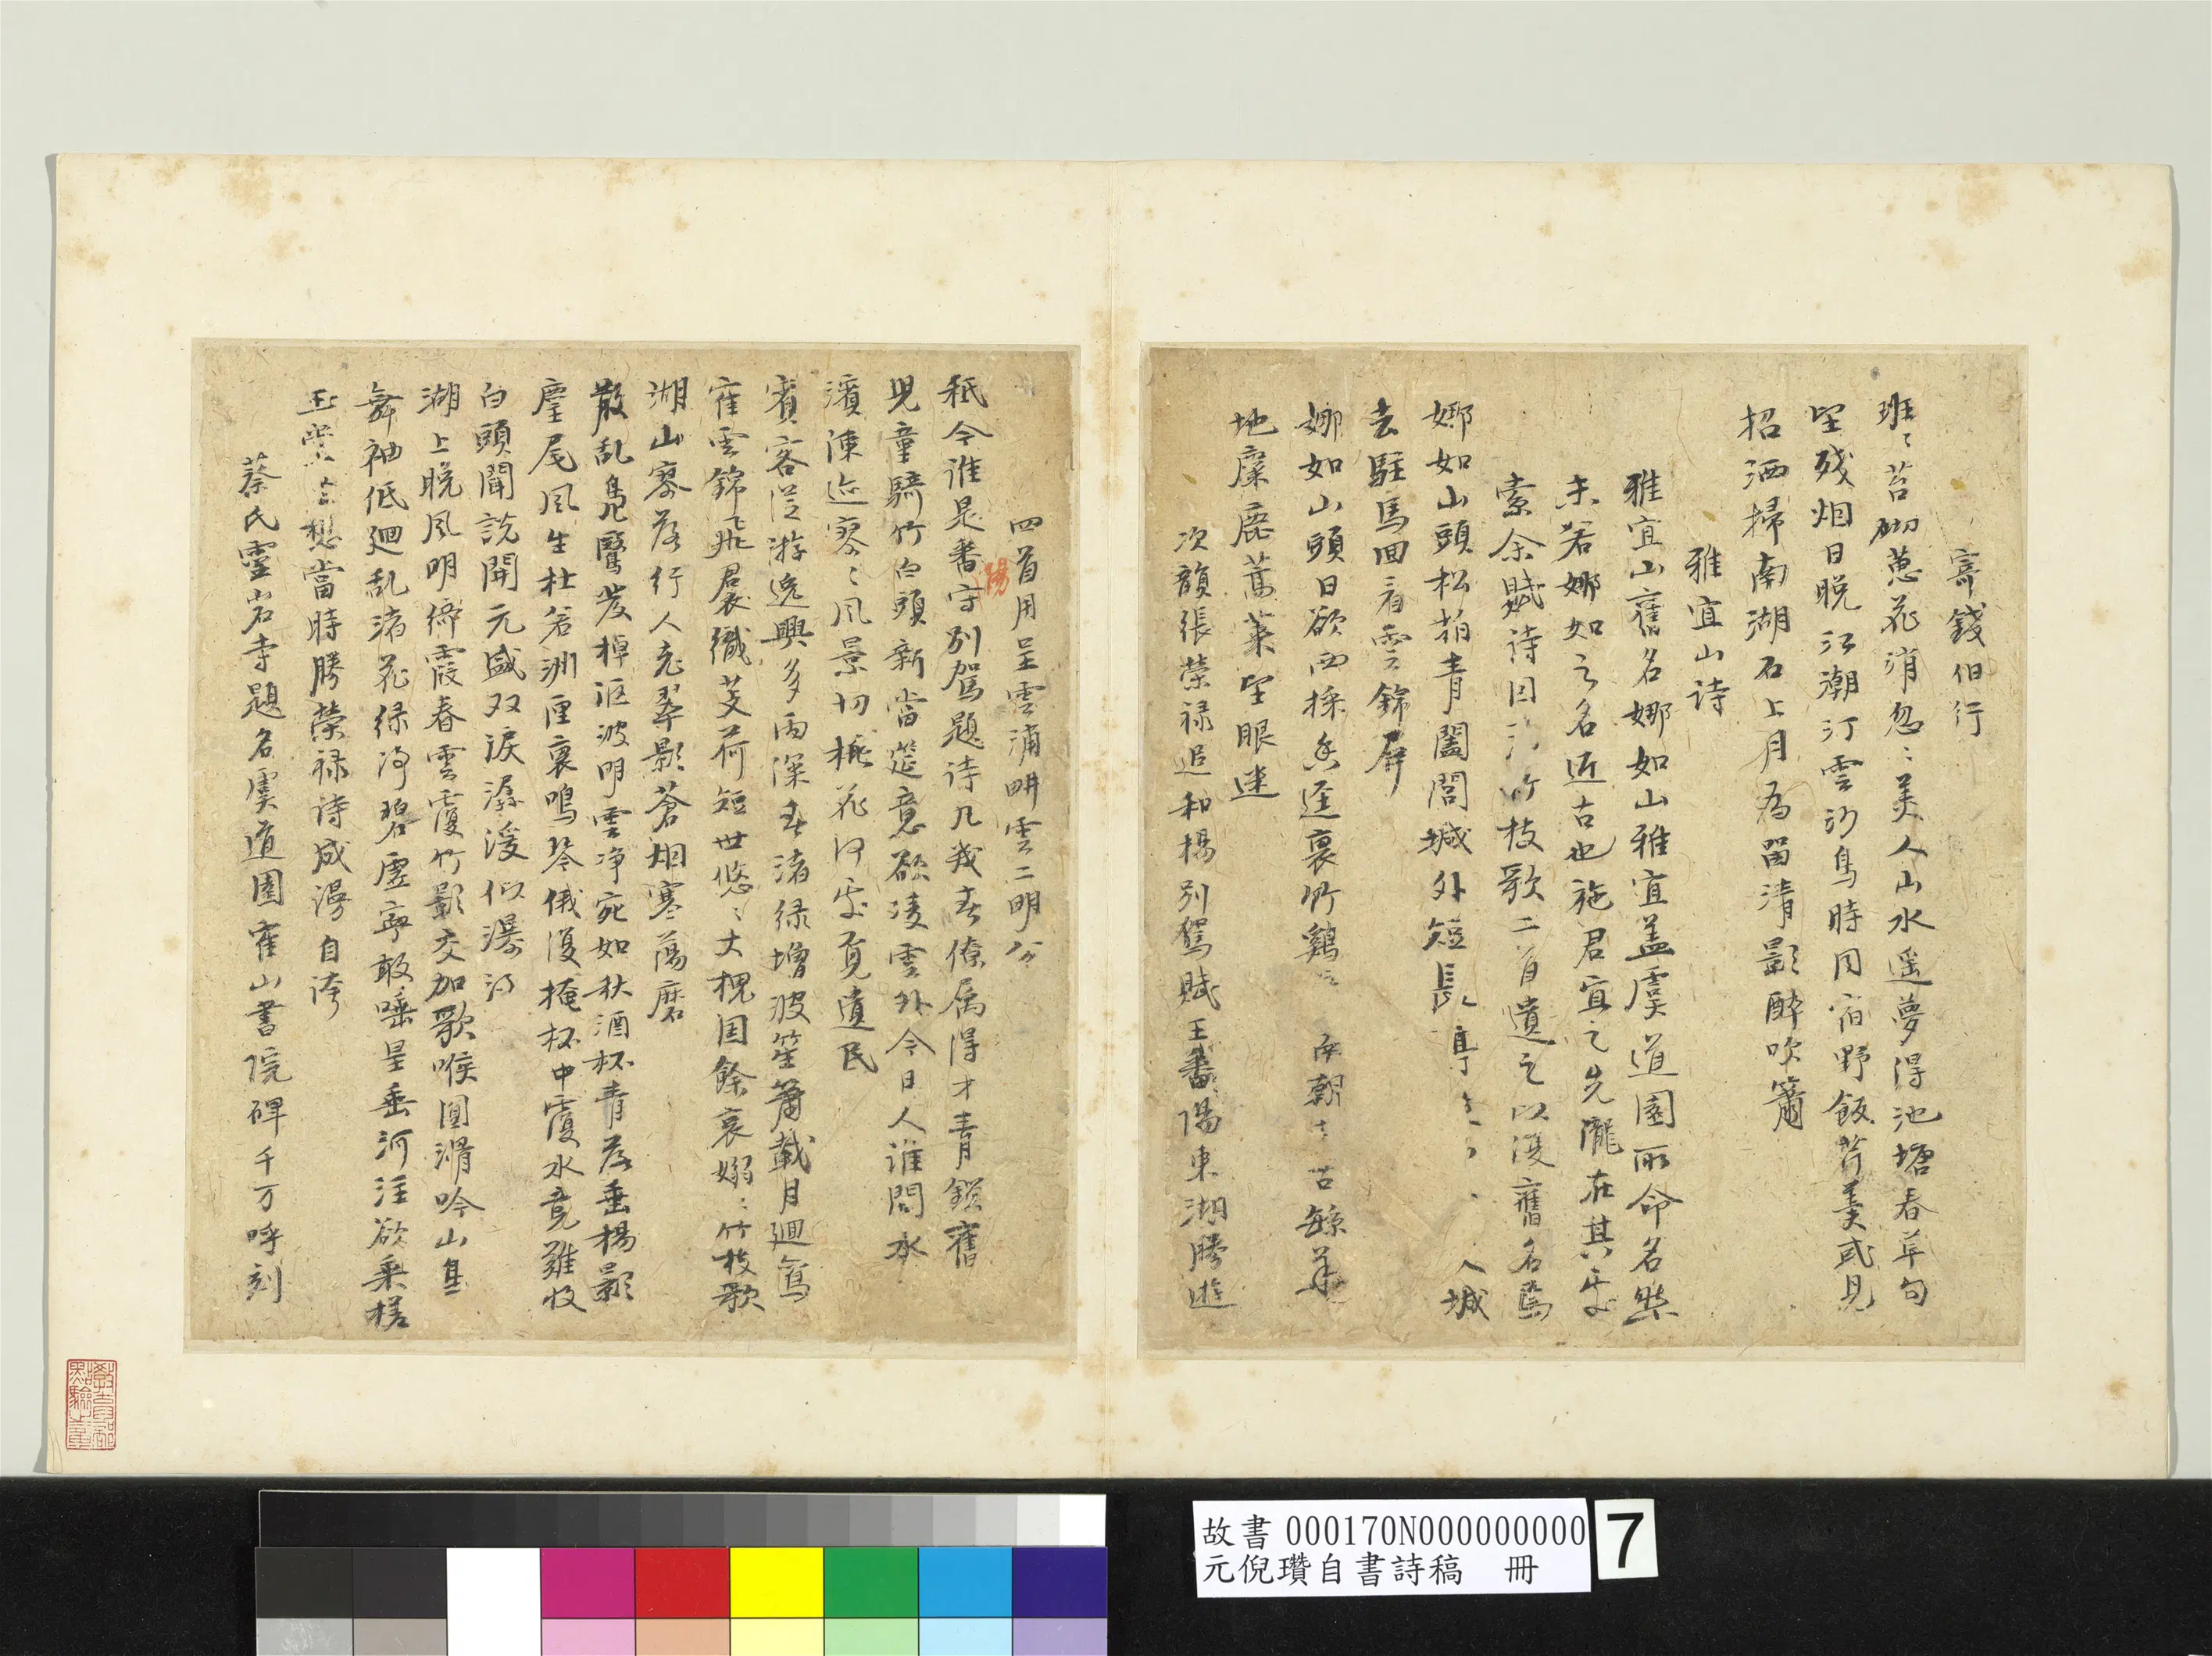 寄錢伯行
班〻苔砌蕙花消忽〻美人山水遥夢得池塘春草句
望殘烟日晚江潮汀雲沙鳥時同宿野飯芹羹或見
招洒掃南湖石上月為留清影醉吹簫
雅宜山詩
雅宜山舊名娜如山雅宜蓋虞道園所命名然
未若娜如之名近古也施君宜之先隴在其處
索余賦詩因 竹枝歌二首遺之以復舊名焉
娜如山頭松栢青闔閭城外短長亭 入城
去駐馬回看雲錦屏
娜如山頭日欲西採香逕裏竹鷄 苦 
地麋鹿蒿萊望眼迷
次韻張榮禄追和楊别駕賦王番陽東湖勝遊
四首用呈雲浦畊雲二明公
秖今誰是番陽守别駕題詩凡幾春僚屬得才青鎖舊
兒童騎竹白頭新當筵意欲凌雲外今日人誰問水
濱陳迹寥〻風景切 花何處覓遺民
賓客從游逸興多雨深春渚緑增波笙簫載月迴鴛
 雲錦飛裙織芰荷短世悠〻大槐国餘哀嫋〻竹枝歌
湖山寥落行人 翠影蒼烟寒蕩磨
散乱鳧鷖發棹漚波明雲净宛如秋酒杯青落垂楊影
麈尾風生杜若洲匣裏鳴琴俄復掩杯中覆水竟難收
白頭聞説開元盛双淚潺湲似瀑流
湖上晚風明綺霞春雲覆竹影交加歌喉圓滑吟山鬼
舞袖低迴乱渚花緑浄碧虛寧敢唾星垂河注欲乘槎
玉 想當時勝榮禄詩成漫自誇
蔡氏靈岩寺題名虞道園 山書院碑千万呼刻
故書 000170N000000000
元倪瓚自書詩稿 冊
7